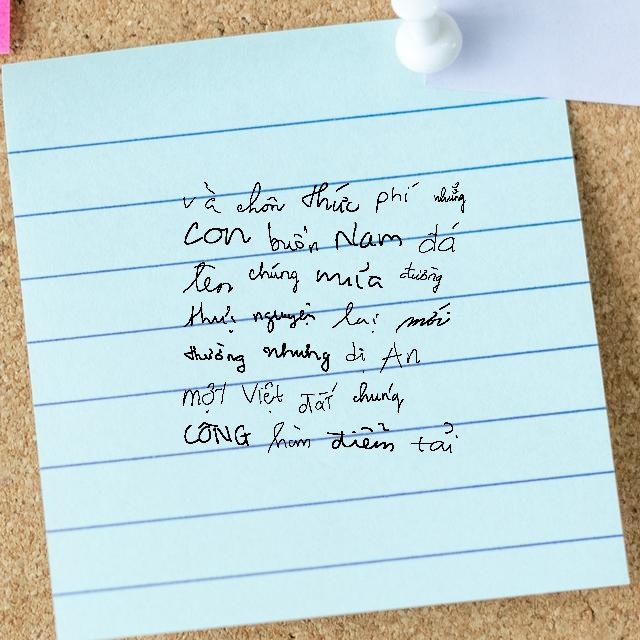 và chôn thức phí những
CON buôn Nam đá
tên chúng mưa đường
thuị nguyện lại mới
thường nhưng dị An
một Việt đất chung
CÔNG hàm điểm tải